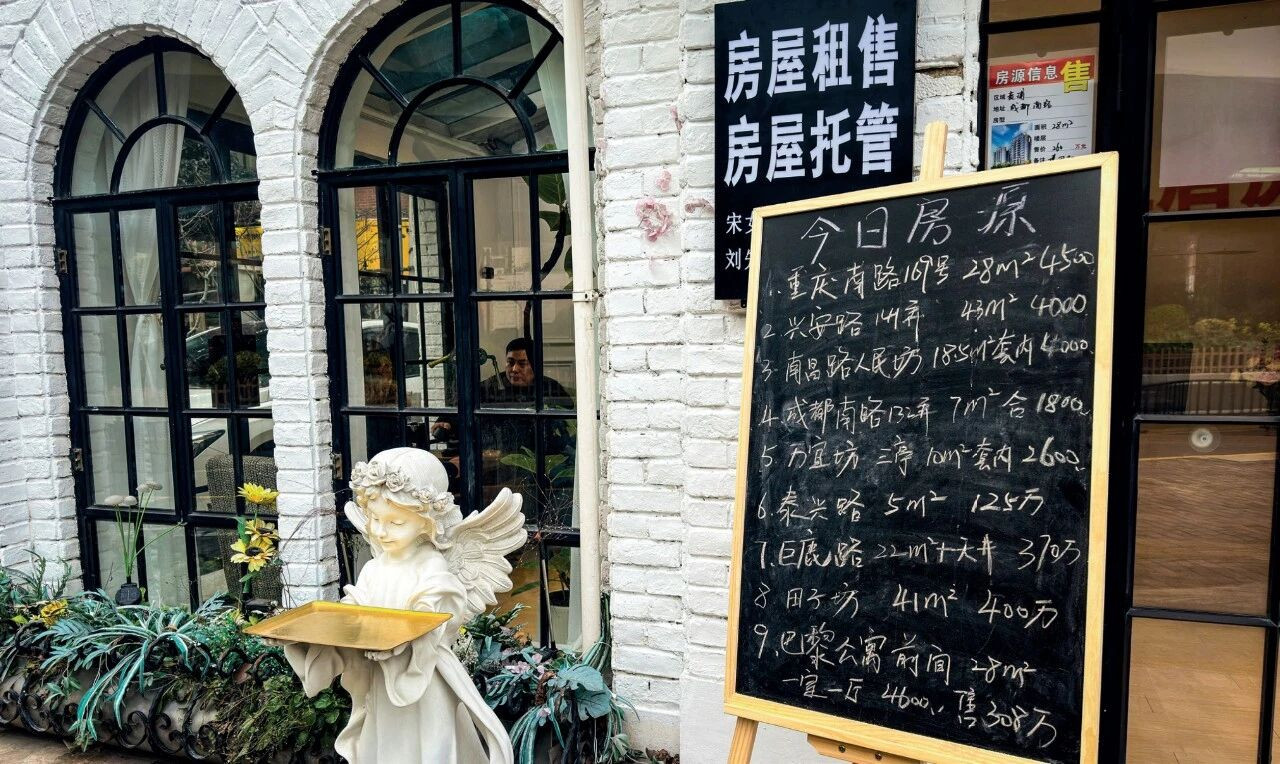 房屋租售
房屋托管
宋女
刘先
房源信息 售
区域 黄浦
地址 成都南路
房型
面积 28m²
楼层
售价 260 万元
备注
今日房源
1. 重庆南路169号 28m² 4500
2 兴安路141弄 43m² 4000
3. 南昌路人民坊 18.5m²套内 4000.
4. 成都南路132弄 7m² 合 1800.
5 万宜坊 三亭 10m²套内 2600.
6. 泰兴路 5m² 125万
7. 巨鹿路 22m²+天井 370万
8 田子坊 41m² 400万
9. 巴黎公寓前间 28m²
一室一厅 4600., 售308万